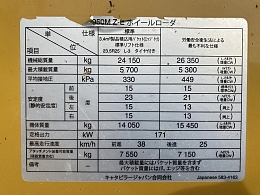 950M Z-E ホイールローダ
単位
仕様
項目
標準
3.4m³製品積込用バケット(エッジ付)
標準リフト仕様
23.5R25 L-3 タイヤ付き
労働安全衛生法による
最も不利な仕様
機械総質量 kg 24 150 26 350
最大積載質量 kg 5 700 5 300
平均接地圧 kPa 330 449
安定度
(静的安定度)
前 度 23 21
後 度 15 13
左 度 15 15
右 度 15 15
機体質量 kg 14 050 15 450
定格出力 kW 171
最高走行速度 km/h 前進 38 後進 25
kg 7 550 7 150
最大積載量にはバケット質量を含まず
バケット質量には、エッジ等を含む
キャタピラージャパン合同会社 Japanese 583-4163